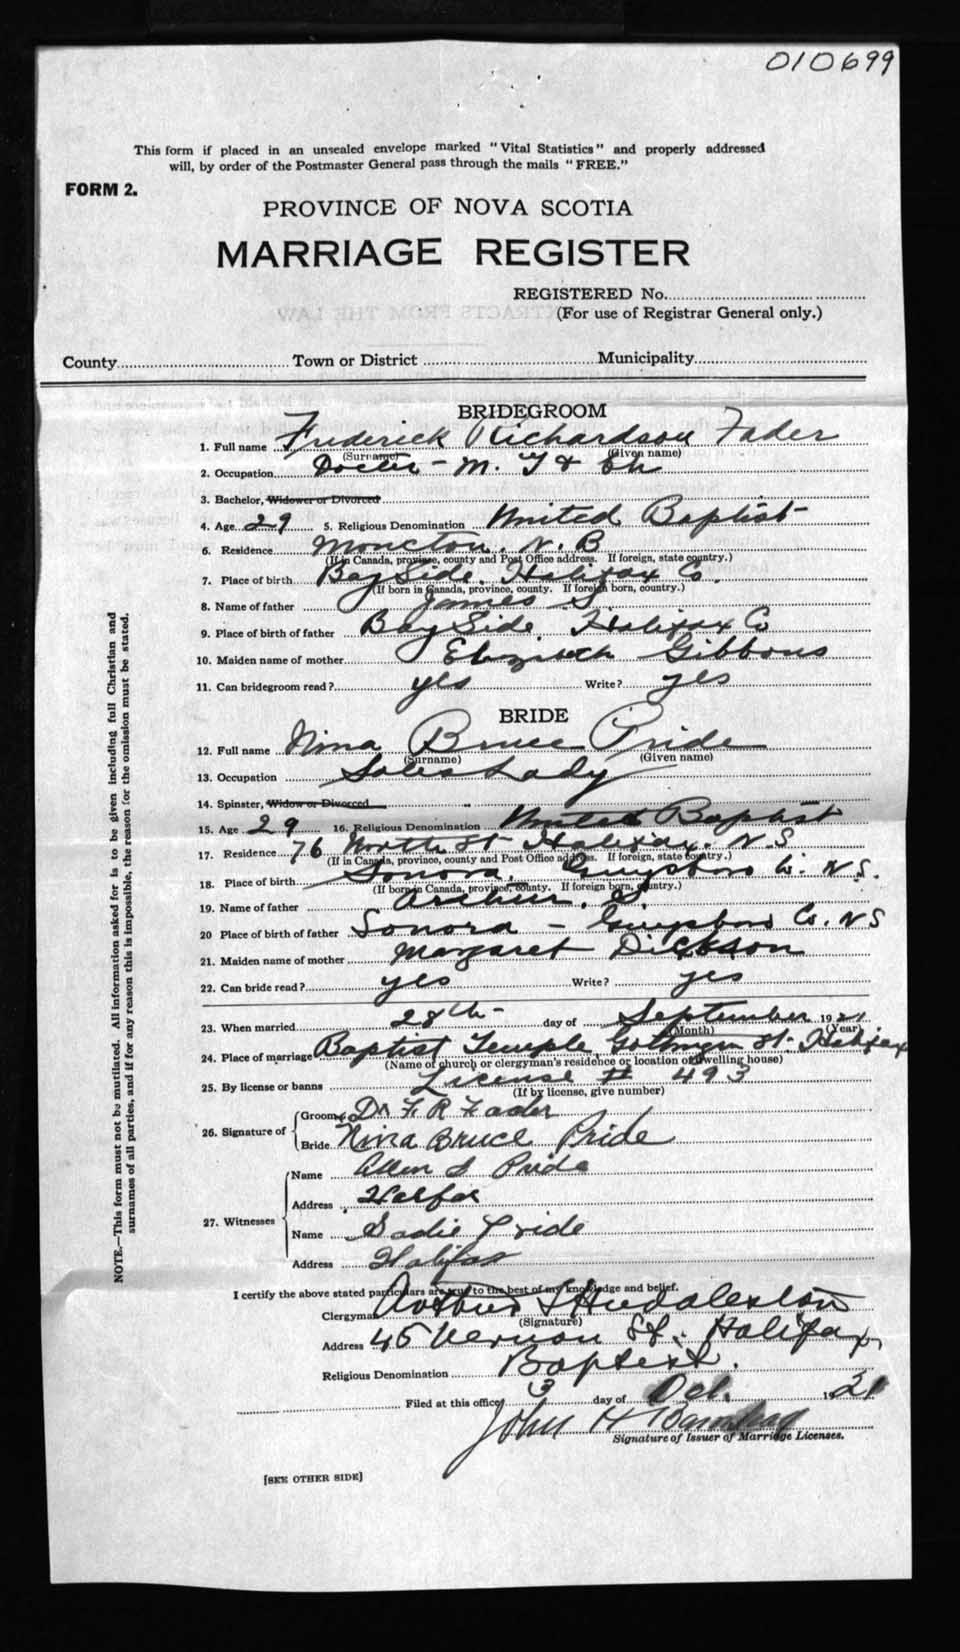 010699
This form if placed in an unsealed envelope marked "Vital Statistics" and properly addressed
will, by order of the Postmaster General pass through the mails "FREE."
FORM 2.
PROVINCE OF NOVA SCOTIA
MARRIAGE REGISTER
REGISTERED No.
(For use of Registrar General only.)
County Town or District Municipality
BRIDEGROOM
1. Full name Frederick Richardson Fader
(Surname) (Given name)
2. Occupation Doctor - M.
3. Bachelor, Widower or Divorced
4. Age 29 5. Religious Denomination United Baptist
6. Residence Moncton. N. B
(If in Canada, province, county and Post Office address. If foreign, state country.)
7. Place of birth Bay Side. Halifax Co.
(If born in Canada, province, county. If foreign born, country.)
8. Name of father James S
9. Place of birth of father Bay Side. Halifax Co
10. Maiden name of mother Elizabeth Gibbons
11. Can bridegroom read? yes Write? yes
BRIDE
12. Full name Nina Bruce Pride
(Surname) (Given name)
13. Occupation Sales Lady
14. Spinster, Widow or Divorced
15. Age 29 16. Religious Denomination United Baptist
17. Residence 76 North St Halifax. N. S
(If in Canada, province, county and Post Office address. If foreign, state country.)
18. Place of birth Sonora. Guysboro Co. N. S.
(If born in Canada, province, county. If foreign born, country.)
19. Name of father Arthur.
20 Place of birth of father Sonora - Guysboro Co. N S
21. Maiden name of mother Margaret Dickson
22. Can bride read? yes Write? yes
23. When married 28th day of September 1921
(Month) (Year)
24. Place of marriage Baptist Temple Gottingen St. Halifax
(Name of church or clergyman's residence or location of dwelling house)
25. By license or banns License # 493
(If by license, give number)
26. Signature of
Groom Dr F. R Fader
Bride Nina Bruce Pride
27. Witnesses
Name Allen S Pride
Address Halifax
Name Sadie Pride
Address Halifax
I certify the above stated particulars are true to the best of my knowledge and belief.
Clergyman Arthur S Huddleston
(Signature)
Address 45 Vernon St. Halifax
Religious Denomination Baptist.
Filed at this office 3 day of Oct. 1921
John H
Signature of Issuer of Marriage Licenses.
[SEE OTHER SIDE]
NOTE.—This form must not be mutilated. All information asked for is to be given including full Christian and
surnames of all parties, and if for any reason this is impossible, the reason for the omission must be stated.